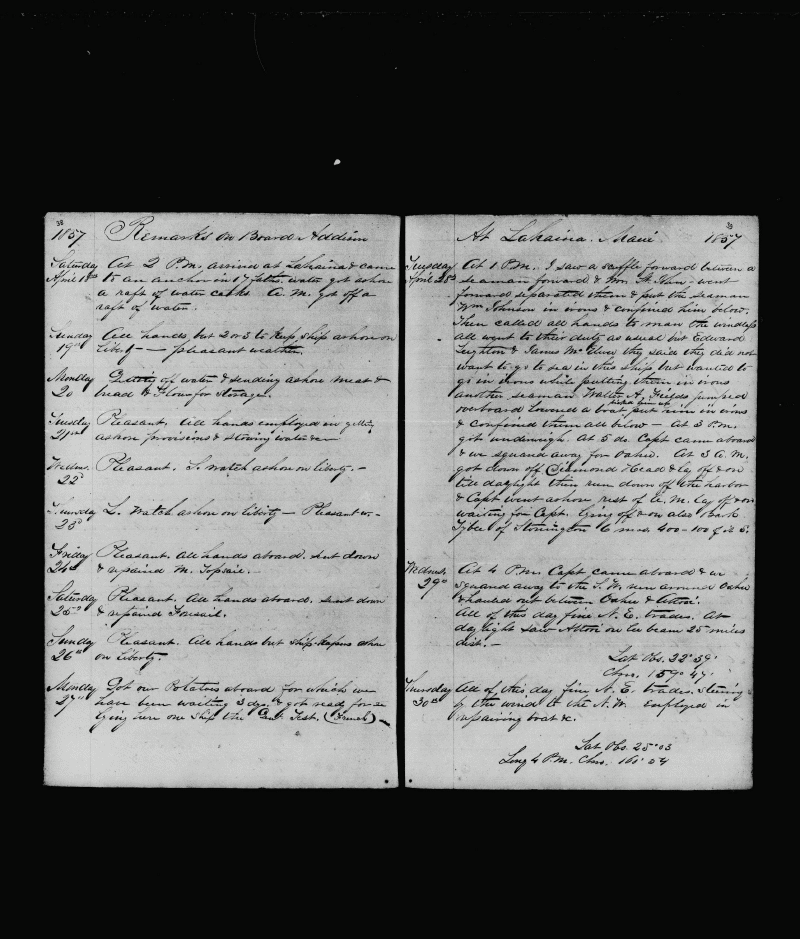 38
1857 Remarks on Board Addison
Saturday At 2 P.M. arrived at Lahaina & came
April 18th to an anchor in 17 faths. water got ashore
a raft of water casks. A.M. got off a
raft of water.
Sunday All hands but 2 or 3 to keep ship ashore on
19th liberty — pleasant weather.
Monday Getting off water & sending ashore meat &
20 bread & Flour for Storage.
Tuesday Pleasant. All hands employed in getting
21st ashore provisions & stowing water &c
Wednes. Pleasant. S. watch ashore on liberty. –
22d
Thursday L. Watch ashore on liberty — Pleasant w. –
23d
Friday Pleasant. All hands aboard. sent down
24th & repaired M. Topsail. –
Saturday Pleasant. All hands aboard. sent down
25th & repaired Foresail.
Sunday Pleasant. All hands but ship-keepers ashore
26th on liberty.
Monday Got our Potatoes aboard for which we
27th have been waiting 3 days & got ready for sea
lying here one Ship the Genl. Test. (French) –
39
At Lahaina. Maui 1857
Tuesday At 1 P.M. I saw a scuffle forward between a
April 28th seaman forward & went
forward separated them & put the seaman
Wm Johnson in irons & confined him below.
Then called all hands to man the windlass
all went to their duty as usual but Edward
Leighton & James they said they did not
want to go to sea in this ship but wanted to
go in irons while putting them in irons
another seaman Walter A. Fields jumped
overboard toward a boat, picked him up put him in irons
& confined them all below — At 3 P.M.
got underweigh. At 5 do. Capt came aboard
& we squared away for Oahu. At 3 A.M.
got down off Diamond Head & lay off & on
till daylight then run down off the harbor
& Capt went ashore rest of A.M. lay off & on
waiting for Capt. lying off & on also Bark
Tybee of Stonington 6 mos. 400-100
Wednes. At 4 P.M. Capt came aboard & we
29th squared away to the S.W. run around Oahu
& hauled out between Oahu & Attoi.
All of this day fine N.E. trades. At
daylight saw Attoi on lee beam 25 miles
dist. –
Lat Obs. 22° 59'
Chro. 159° 47'
Thursday All of this day fine N.E. trades. Steering
30th by the wind to the N.W. employed in
repairing boat &c.
Lat Obs. 25° 03
Long 4 P.M. Chro. 161° 04